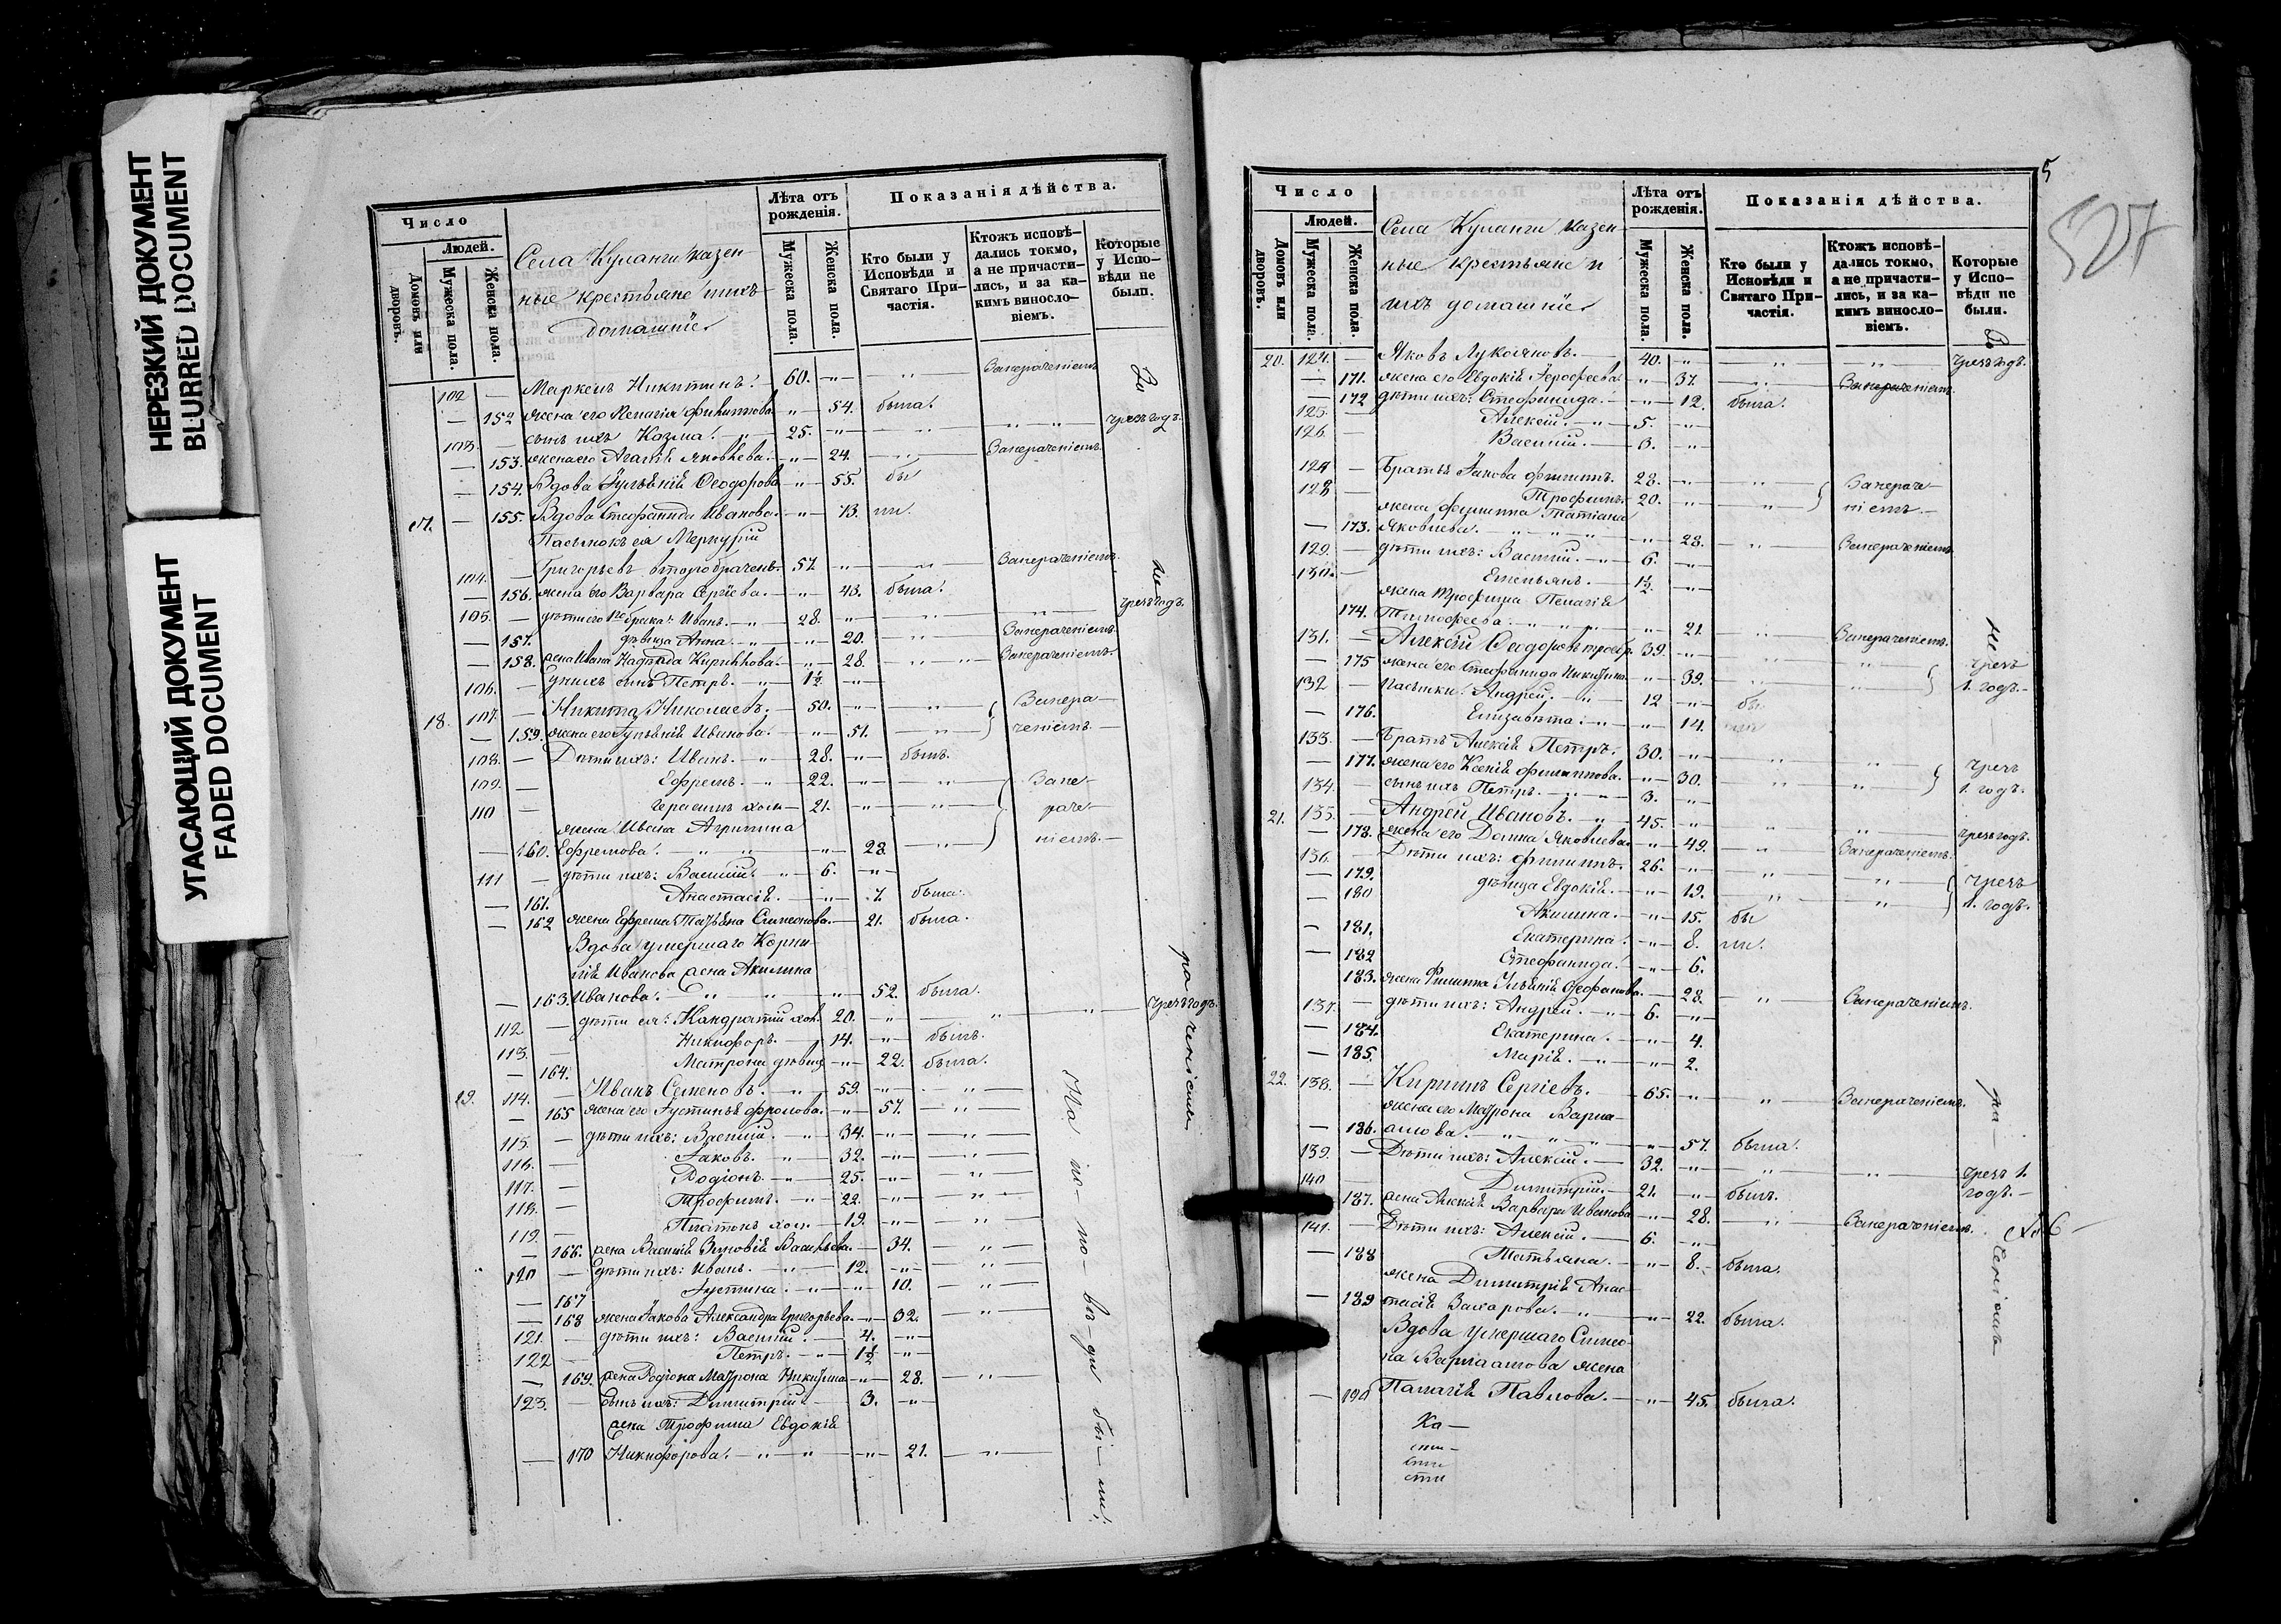 НЕРЕЗКИЙ ДОКУМЕНТ
BLURRED DOCUMENT
УГАСАЮЩИЙ ДОКУМЕНТ
FADED DOCUMENT
Число
Людей.
Домовъ или дворовъ.
Мужеска пола.
Женска пола.
Села Куланги казен-
ные крестьяне и ихъ
домашніе
Лѣта отъ рожденія.
Мужеска пола.
Женска пола.
Показанія дѣйства.
Кто были у Исповѣди и Святаго Причастія.
Ктожъ исповѣдались токмо, а не причастились, и за какимъ винословіемъ.
Которые у Исповѣди не были.
102 — Маркелъ Никитинъ. 60. —„— „ Занераченіемъ
— 152 жена его Пелагія Филиппова —„— 54. была.
103. — сынъ ихъ Козма. —„— 25. —„— „ „ „ чрезъ годъ.
— 153. жена его Агафія Яковлева. —„— 24. „ Занераченіемъ.
— 154. Вдова Іуліанія Ѳеодорова —„— 55. бы
17. — 155. Вдова Стефанида Иванова. —„— 73. ли.
Пасынокъ ея Меркурій
104. — Григорьевъ второбраченъ. 57 —„— „ Занераченіемъ.
— 156. жена его Варвара Сергіева. —„— 43. была.
105. — дѣти его 1го брака: Иванъ. —„— 28. —„— „ чрезъ годъ.
— 157. дѣвица Анна. —„— 20. „ Занераченіемъ.
— 158. жена Ивана Надежда Кириллова. —„— 28. „ „ Занераченіемъ.
106. — у нихъ сынъ Петръ. —„— 1½. —„—
18. 107. — Никита Николаевъ. 50. —„— „ Занера-
— 159. жена его Іуліанія Иванова. —„— 51. „ ченіемъ.
108. — Дѣти ихъ: Иванъ. —„— 28. —„— былъ.
109. — Ефремъ. —„— 22. —„— „ Зане-
110 — Герасимъ хол. 21. —„— „ раче-
жена Ивана Агрипина
— 160. Ефремова. —„— 28. „ ніемъ.
111 — дѣти ихъ: Василій. —„— 6. —„—
— 161. Анастасія. —„— 7. была.
— 162 жена Ефрема Татьяна Симеонова. 21. была.
Вдова умершаго Корни-
лія Иванова жена Акилина
— 163. Иванова. „ „ —„— 52. была.
112 — дѣти ея: Кандратій хол. 20. —„— „ „ чрезъ годъ.
113. — Никифоръ. 14. —„— былъ.
— 164. Матрона дѣвица —„— 22. была.
19. 114. — Иванъ Семеновъ. —„— 59. —„— „
— 165 жена его Іустинія Фролова. —„— 57. „
115. — дѣти ихъ: Василій. —„— 34. —„— „
116. — Іаковъ. —„— 32. —„— „
117. — Родіонъ. —„— 25. —„— „
118. — Трофимъ. —„— 22. —„— „
119. — Платонъ хол. 19. —„— „
— 166. жена Василія Зиновія Васильева. 34. „
120 — дѣти ихъ: Иванъ. —„— 12. —„— „
— 167 Іустина. —„— 10. „
— 168 жена Іакова Александра Григорьева. —„— 32. „
121. — дѣти ихъ: Василій. 4. —„—
122 — Петръ. —„— 1½ —„—
— 169. жена Родіона Матрона Никитина —„— 28. „
123. — сынъ ихъ: Димитрій. 3. —„—
жена Трофима Евдокія
— 170 Никифорова. „ „ —„— 21. „
раченіемъ
5
527
Число
Людей.
Домовъ или дворовъ.
Мужеска пола.
Женска пола.
Села Куланги казен-
ные крестьяне и
ихъ домашніе
Лѣта отъ рожденія.
Мужеска пола.
Женска пола.
Показанія дѣйства.
Кто были у Исповѣди и Святаго Причастія.
Ктожъ исповѣдались токмо, а не причастились, и за какимъ винословіемъ.
Которые у Исповѣди не были.
20. 124. — Яковъ Лукояновъ. 40. „ „ „ чрезъ годъ.
— 171. жена его Евдокія Іерофеева. „ 37. „ Занераченіемъ.
— 172 дѣти ихъ: Стефанида. —„— 12. была.
125. — Алексій. —„— 5. —„—
126. Василій. 3. —„—
127 — Братья Іакова Филиппъ. 28. —„— „ Занераче-
128 — Трофимъ. 20. —„— „ ніемъ.
жена Филиппа Татіана
— 173. Яковлева. „ „ „ 28. „ Занераченіемъ.
129. — дѣти ихъ: Василій. —„— 6. —„—
130. — Емельянъ. 1½. —„—
жена Трофима Пелагія
174. Тимофеева. „ „ „ 21. „ Занераченіемъ.
131. — Алексій Ѳеодоровъ троебр. 39. —„— „ „ чрезъ
— 175 жена его Стефанида Никитина. —„— 39. „ „ 1. годъ.
132 — Пасынки: Андрей. —„— 12 —„— бы
— 176. Елизавета. —„— 14. ли
133. — Братъ Алексія Петръ. 30. —„— „ „ чрезъ
— 177. жена его Ксенія Филиппова. —„— 30. „ „ 1. годъ.
134. — сынъ ихъ Петръ. „ 3. —„—
21. 135. — Андрей Ивановъ. „ 45. —„— „ „ чрезъ годъ.
— 178. жена его Домна Яковлева. —„— 49. „ Занераченіемъ.
136. — Дѣти ихъ: Филиппъ. 26. —„— „ „ чрезъ
— 179. дѣвица Евдокія. —„— 19. „ „ 1. годъ.
— 180 Акилина. —„— 15. бы
— 181. Екатерина. —„— 8. ли.
— 182 Стефанида. —„— 6.
183. жена Филиппа Іуліанія Ѳеофанова. 28. „ Занераченіемъ.
137. — дѣти ихъ: Андрей. —„— 6. —„—
— 184. Екатерина. —„— 4.
— 185. Марія. —„— 2.
22. 138. — Кирилъ Сергіевъ. 65. —„— „ Занераченіемъ.
жена его Матрона Варла-
— 186. амова. „ „ „ 57. была.
139. — Дѣти ихъ: Алексій. 32. —„— „ „ чрезъ 1.
140 Димитрій. 21. —„— былъ. годъ.
— 187. жена Алексія Варвара Иванова —„— 28. „ Занераченіемъ.
141. — Дѣти ихъ: Алексій. 6. —„—
— 188 Татьяна. —„— 8. была.
жена Димитрія Анас-
— 189 тасія Захарова. „ —„— 22. была.
Вдова умершаго Симео-
на Варлаамова жена
— 190 Палагія Павлова. —„— 45. была.